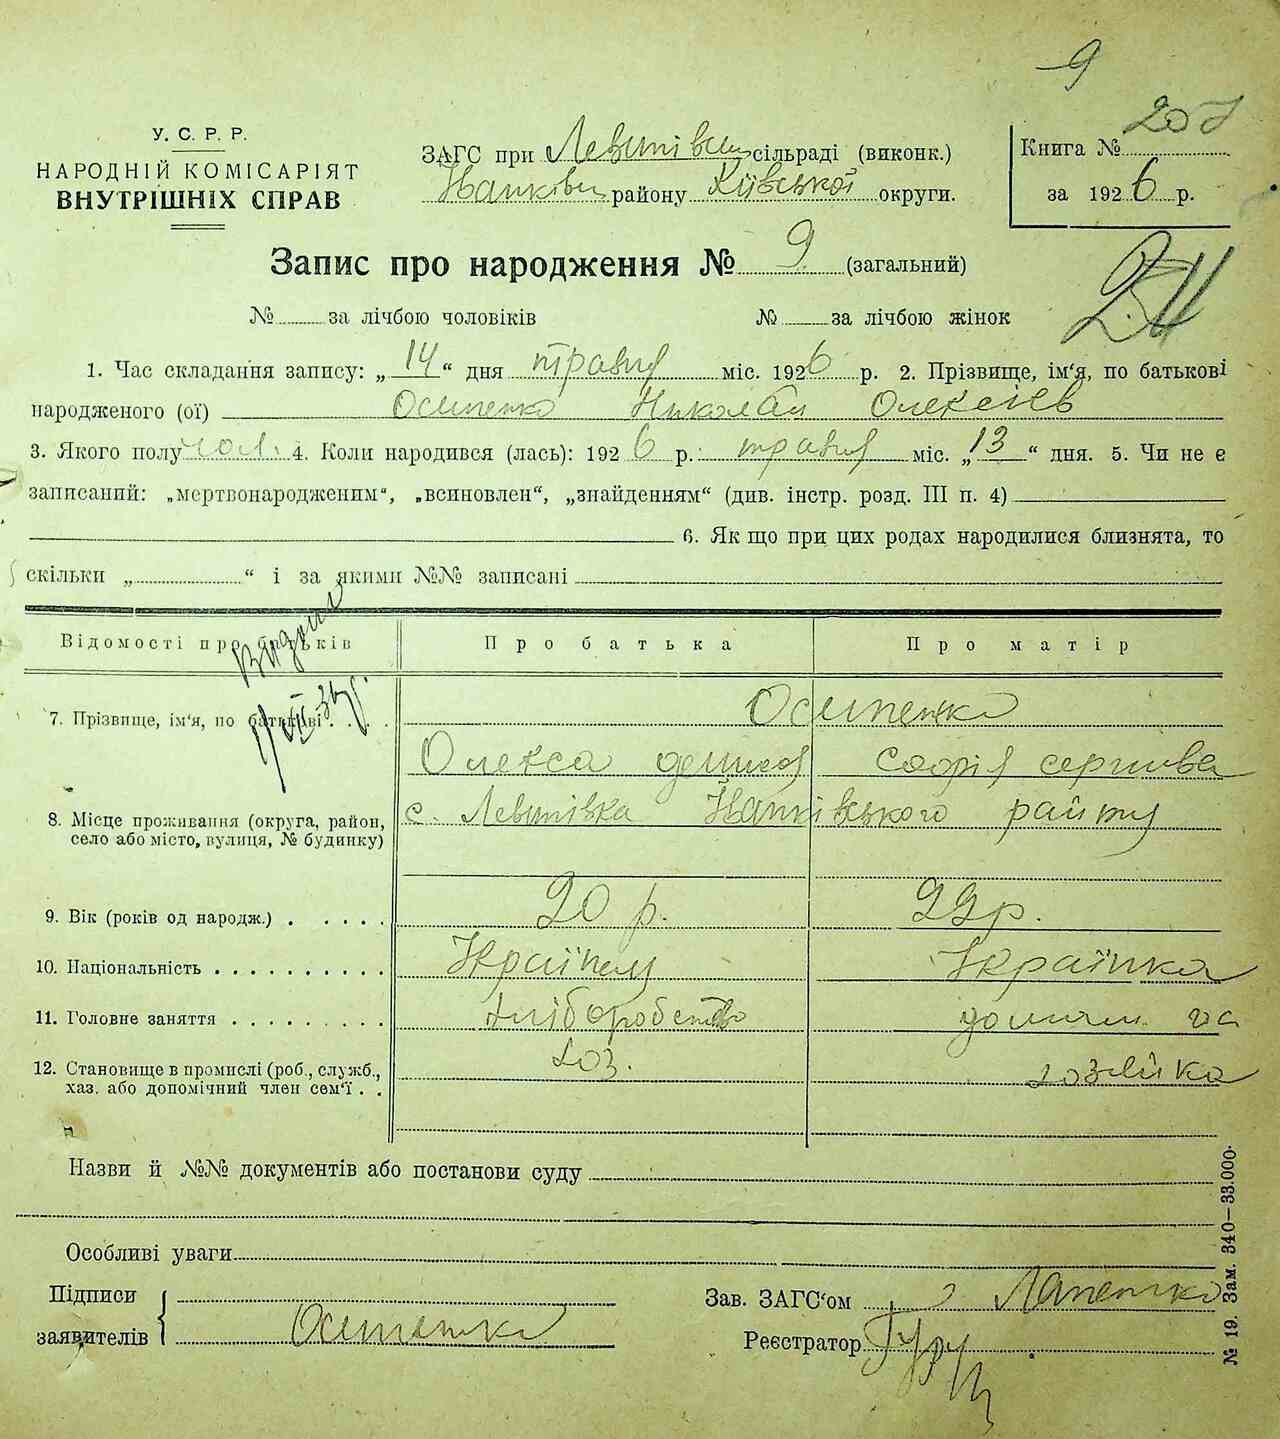 9
У. С. Р. Р.
НАРОДНІЙ КОМІСАРІЯТ
ВНУТРІШНІХ СПРАВ
ЗАГС при сільраді (виконк.)
району Київської округи.
Книга №
за 1926 р.
Запис про народження № 9 (загальний)
№ за лічбою чоловіків № за лічбою жінок
1. Час складання запису: „14“ дня травня міс. 1926 р. 2. Прізвище, ім'я, по батькові
народженого (ої) Осипенко Николай Олексіев
3. Якого полу чол. 4. Коли народився (лась): 1926 р.: травня міс. „13“ дня. 5. Чи не є
записаний: „мертвонародженим“, „всиновлен“, „знайденням“ (див. інстр. розд. III п. 4)
6. Як що при цих родах народилися близнята, то
скільки „ “ і за якими №№ записані
Відомості про батьків Про батька Про матір
7. Прізвище, ім'я, по батькові Осипенко
Олекса софія
8. Місце проживання (округа, район,
село або місто, вулиця, № будинку) с. району
9. Вік (років од народж.) 20 р. 22 р.
10. Національність Українець Українка
11. Головне заняття хліборобство
12. Становище в промислі (роб., служб.,
хаз. або допомічний член сем'ї хоз. хозяйка
Назви й №№ документів або постанови суду
Особливі уваги
Підписи
заявителів Осипенко
Зав. ЗАГС'ом
Реєстратор
№ 19. Зам. 340—33.000.